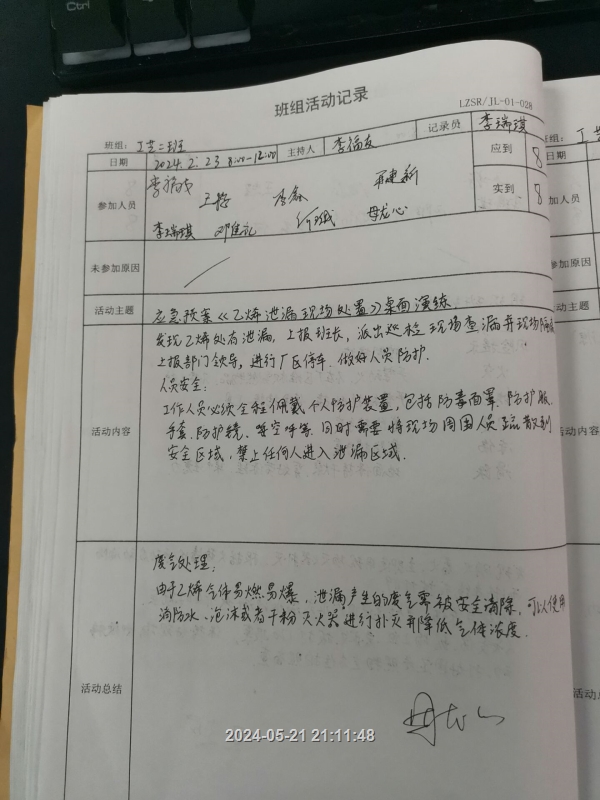 Ctrl
班组活动记录
LZSR/JL-01-028
班组: 工艺二班
日期 2024.2.23 8:00-12:00 主持人 李福友 记录员 李瑞琪
参加人员 应到 8
实到 8
李福成 王 李鑫 建新
李瑞琪 邓 何 母志心
未参加原因
活动主题 应急预案《乙烯泄漏现场处置》桌面演练
活动内容
发现乙烯处有泄漏,上报班长,派出巡检现场查漏并现场
上报部门领导,进行厂区停车.做好人员防护.
人员安全:
工作人员必须全程佩戴个人防护装置,包括防毒面罩.防护服
手套.防护镜.等空呼等.同时需要将现场周围人员疏散到
安全区域,禁止任何人进入泄漏区域.
活动总结
废气处理:
由于乙烯气体易燃易爆,泄漏产生的废气需被安全清除,可以使用
消防水、泡沫或者干粉灭火器进行扑灭并降低气体浓度.
2024-05-21 21:11:48
班组: 工
日期
参加人员
未参加原因
活动主题
活动内容
活动总